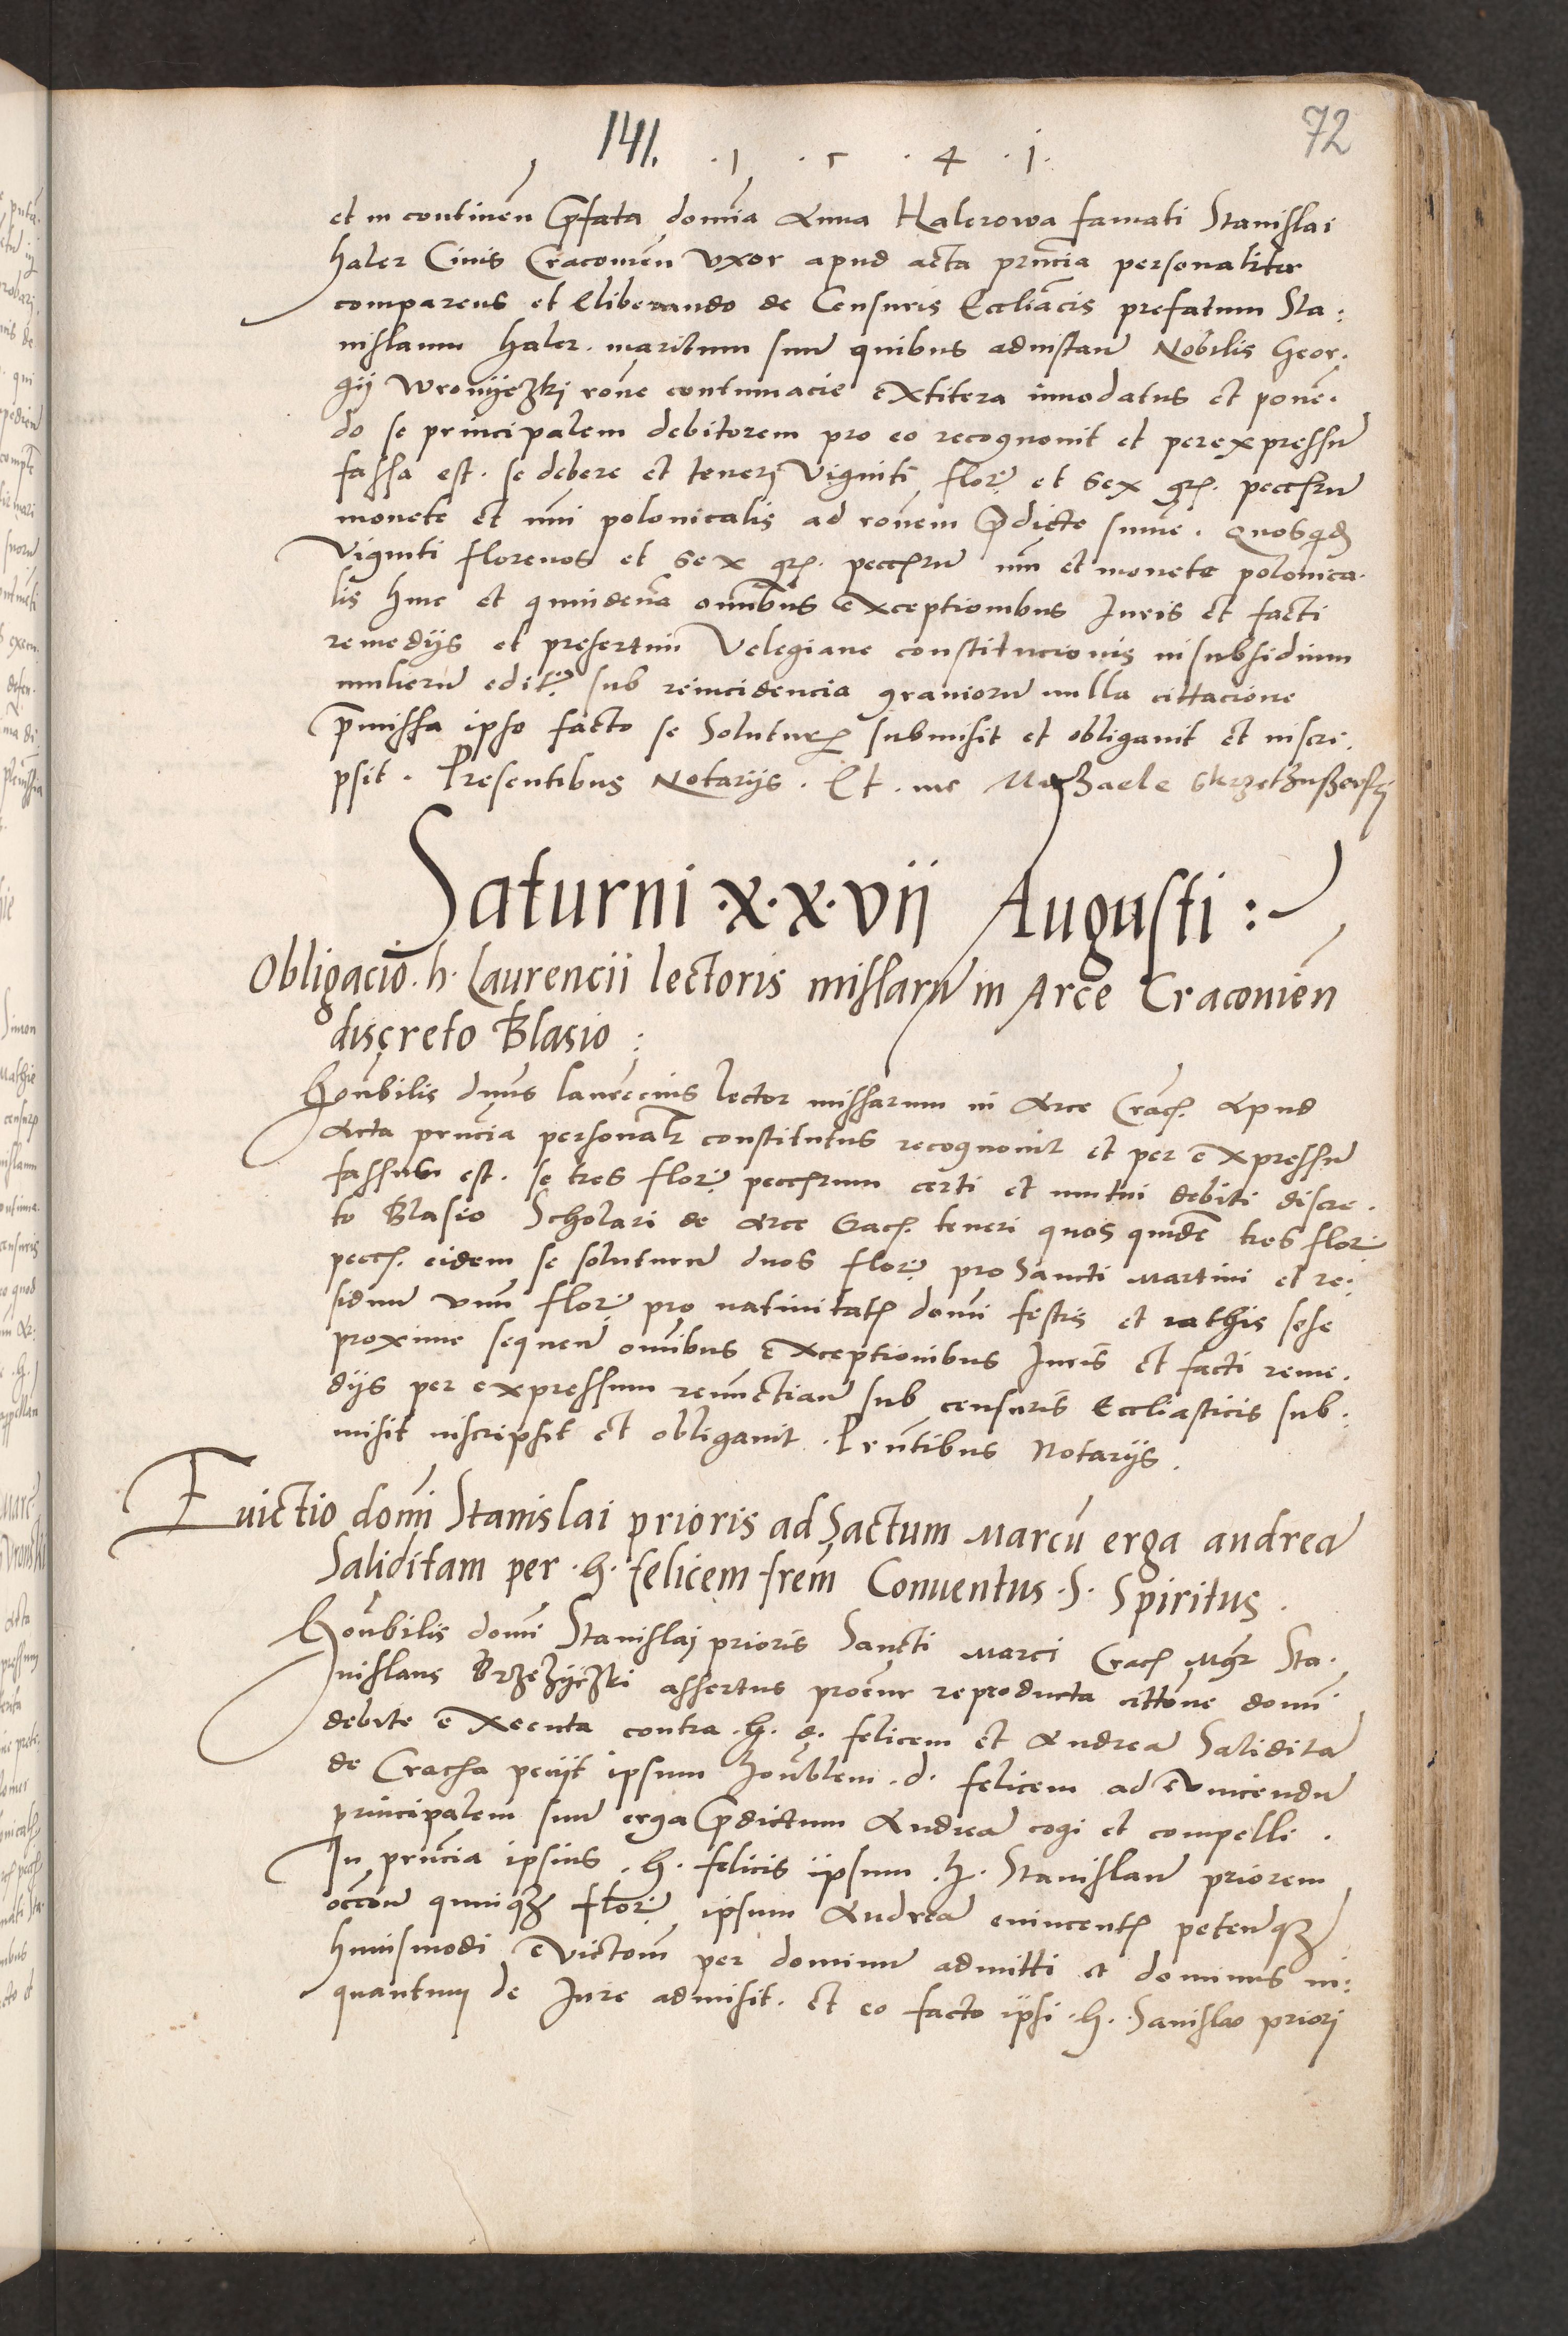 141. · 1 · 5 · 4 · 1 · 72
et in continen p̃fata domĩa Anna Halerowa famati Stanislai
haler Ciuis Cracouien̄ vxor apud acta prn̄cia personaliter
comparens et Eliberando de Censuris Eccliācis prefatum Sta:
nislaum haler. maritum suū quibus ad instan̄ Nobilis Geor.
gij Wronijezkj rōne contumacie extitera innodatus et ponen̄.
do se principalem debitorem pro eo recognouit et per expressū
fassa est. se debere et tenerj viginti florꝭ et sex grꝭ. peccꝭrū
monete et nūi polonicalis ad rōnem p̃dicte summe. quosqd̄
viginti florenos et sex grꝭ. peccꝭrū nūi et monete polonica.
lis hinc et quindena omnibus exceptionibus Iuris et facti
remedijs et presertim Velegiane constitucionis in subsidium
mulierū editꝭ sub reincidencia grauiorū nulla cittacione
p̄missa ipso facto se Soluturꝭ submisit et obligauit et inscri.
psit. Presentibus Notarijs. Et. me
Saturni ·x·x·vij Augusti :~
Obligaciō. h. Laurencii lectoris missarū in Arce Cracouien̄
discreto Blasio :
Honn̄bilis dn̄us laurēcius lector missarum in Arce Cracꝭ. Apud
Acta prn̄cia personalr̄ constitutus recognouit et per expressū
fassus est. se tres florꝭ peccꝭrum certi et mutui debiti discre.
to Blasio Scholari de Arce Cracꝭ. teneri quos quidē tres florꝭ
peccꝭ. eidem se soluturū duos florꝭ pro Sancti Martini et re:
siduū vnū florꝭ pro natiuitatꝭ domī festis et rathis sese
proxime sequen̄ omībus exceptionibus Iuris et facti reme.
dijs per expressum renūctian̄ sub censuris Eccliasticis sub:
misit inscripsit et obligauit. Prn̄tibus Notarijs.
Euictio domī Stanislai prioris ad Sactum Marcū erga andreā
Saliditam per .h. felicem frēm Conuentus .S. Spiritus.
Honn̄bilis domī Stanislaj prioris Sancti Marci Cracꝭ Mgr̄ Sta.
nislaus Brzezijezki assertus procūr reproducta cittōne domī
debite executa contra .h. d. felicem et Andreā Saliditā
de Cracꝭa petijt ipsum honn̄blem .d. felicem ad euincendū
principalem suū erga p̃dictum Andreā cogi et compelli.
In prn̄cia ipsius .h. felicis ipsum .h. Stanislaū priorem
occōne quinqꝫ florꝭ ipsum Andreā euincentꝭ peten̄qꝫ
huiusmodi euictōm per dominū admitti et dominus in:
quantum de Iure admisit. et eo facto ipsi .h. Sanislao priorj